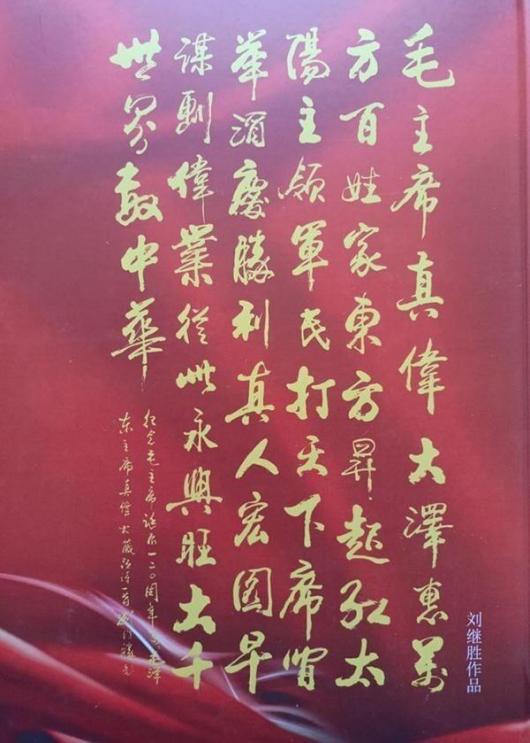 毛主席真偉大澤惠萬
方百姓家東方昇起紅太
陽主領軍民打天下席間
舉酒慶勝利真人宏圖早
謀劃偉業從此永興旺大千
世界敬中華
纪念毛主席诞辰一二〇周年毛泽
东主席真偉大藏頭诗一首
刘继胜作品